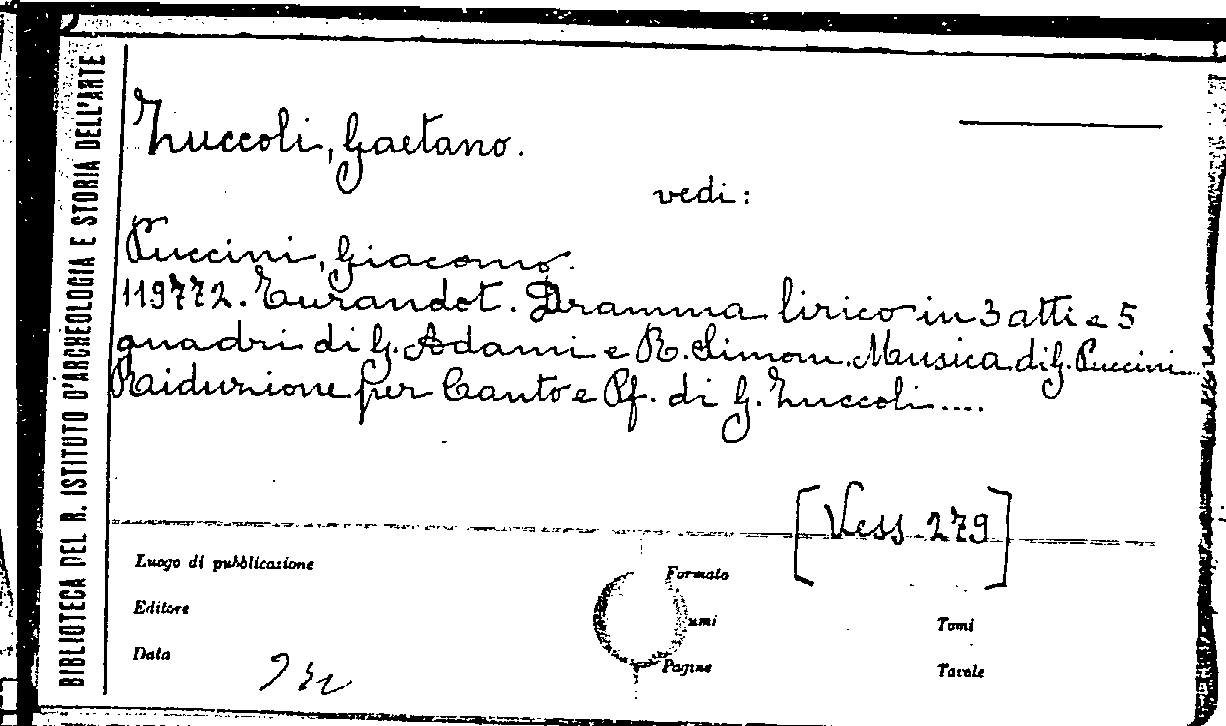 BIBLIOTECA DEL R. ISTITUTO D'ARCHEOLOGIA E STORIA DELL'ARTE
Zuccoli, Gaetano.
vedi:
Puccini, Giacomo.
119772. Turandot. Dramma lirico in 3 atti e 5
quadri di G. Adami e R. Simoni. Musica di G. Puccini...
Raiduzione per Canto e Pf. di G. Zuccoli....
[Vess. 279]
Luogo di pubblicazione
Formato
Editore
umi
Tomi
Data
Pagine
Tavole